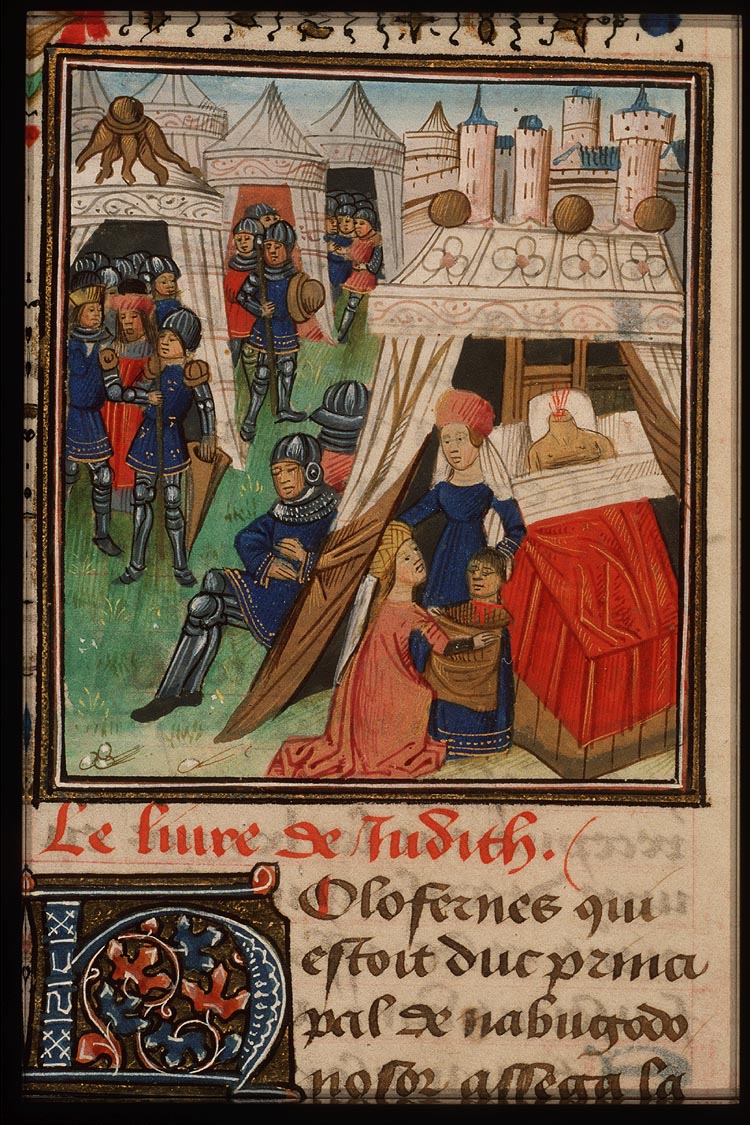 Le liure de Judith.
Olofernes qui
estoit duc princi
pal de nabugodo
nosor assega la